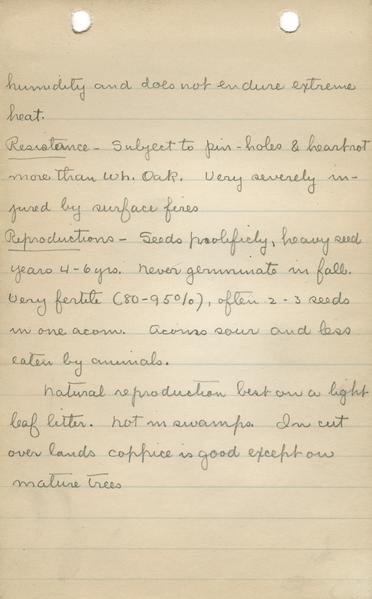 humidity and does not endure extreme
heat.
Resistance - Subject to pin-holes & heartrot
more than Wh. Oak. Very severely in-
jured by surface fires
Reproductions - Seeds prolificly, heavy seed
years 4-6 yrs. never germinate in fall.
Very fertile (80-95%), often 2-3 seeds
in one acorn. Acorns sour and less
eaten by animals.
Natural reproduction best on a light
leaf litter. not in swamps. In cut
over lands coppice is good except on
mature trees